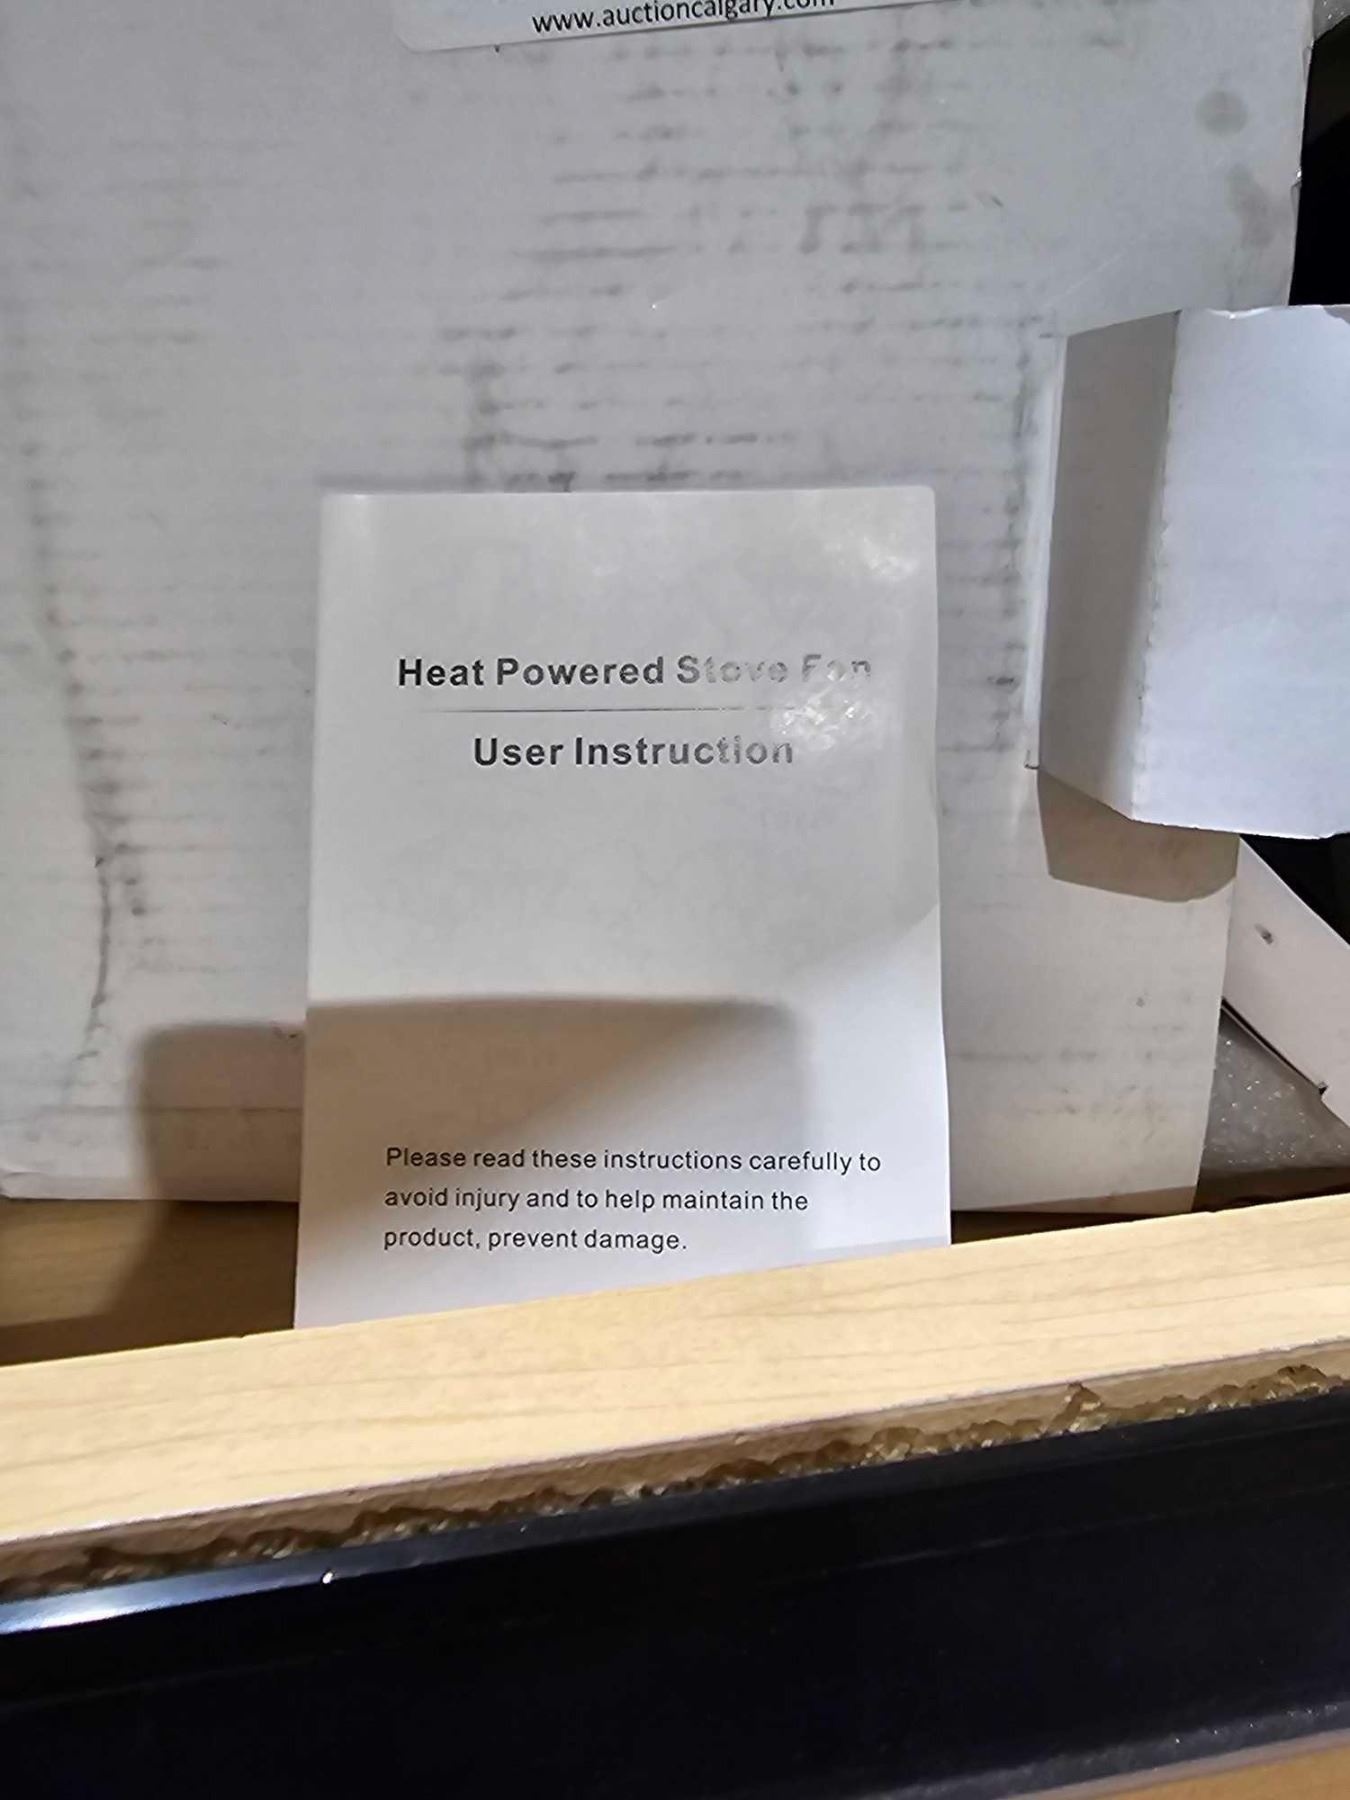 www.auctioncalgary.com
Heat Powered Stove Fan
User Instruction
Please read these instructions carefully to
avoid injury and to help maintain the
product, prevent damage.